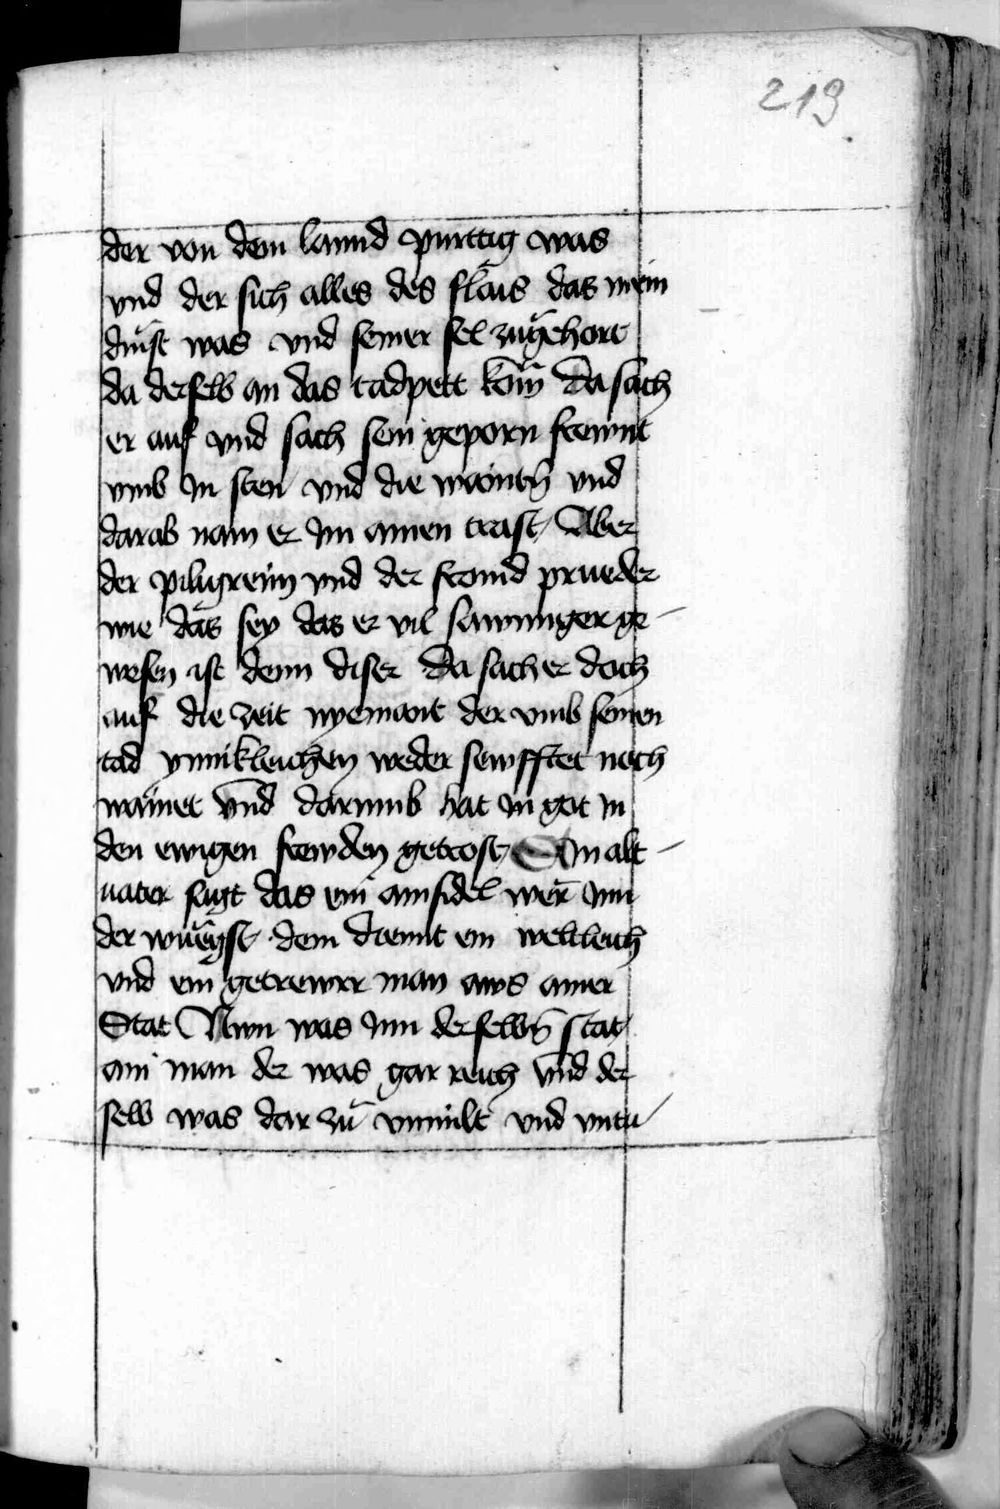 219
der von dem lannd purttig was
vnd der sich alles des flais das mein
dinst was vnd seiner sel zugehort
da derselb an das tadpett kom Da sach
er auf vnd sach sein geporn frewnt
vmb In sten vnd die wainten vnd
darab nam er Im ainen trast Aber
der piligreim vnd der fromd prueder
wie das sey das er vil sawmiger ge-
wesen ist denn diser Da sach er doch
auf die zeit nyemant der vmb seinen
tad ynnikleichen weder sewfftet noch
wainet vnd darumb hat In got In
den ewigen frewden getrost Ein alt-
uater sagt das ein ainsidel wer Inn
der wuegst dem dient ein weltleich
vnd ein getrewrr man aws ainer
Stat Nwn was Inn derselbn stat
ain man der was gar reich vnd der
selb was dar zu vnmilt vnd vntu